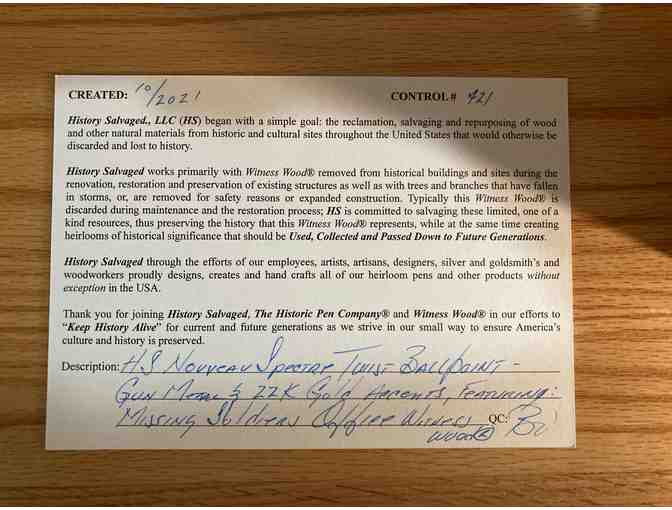 CREATED: 10/2021 CONTROL # 421
History Salvaged., LLC (HS) began with a simple goal: the reclamation, salvaging and repurposing of wood
and other natural materials from historic and cultural sites throughout the United States that would otherwise be
discarded and lost to history.
History Salvaged works primarily with Witness Wood® removed from historical buildings and sites during the
renovation, restoration and preservation of existing structures as well as with trees and branches that have fallen
in storms, or, are removed for safety reasons or expanded construction. Typically this Witness Wood® is
discarded during maintenance and the restoration process; HS is committed to salvaging these limited, one of a
kind resources, thus preserving the history that this Witness Wood® represents, while at the same time creating
heirlooms of historical significance that should be Used, Collected and Passed Down to Future Generations.
History Salvaged through the efforts of our employees, artists, artisans, designers, silver and goldsmith's and
woodworkers proudly designs, creates and hand crafts all of our heirloom pens and other products without
exception in the USA.
Thank you for joining History Salvaged, The Historic Pen Company® and Witness Wood® in our efforts to
"Keep History Alive" for current and future generations as we strive in our small way to ensure America's
culture and history is preserved.
Description: HS Nouveau Spectre Twist Ballpoint -
Gun Metal & 22K Gold Accents, Featuring:
Missing Soldiers Office Witness QC:
Wood®